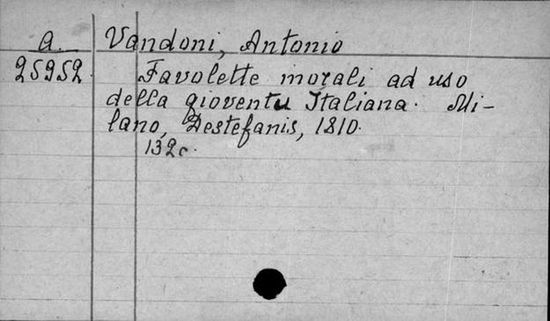 a. Vandoni, Antonio
25952. Favolette morali ad uso
della gioventu Italiana. Mi-
lano, Destefanis, 1810.
132 c.